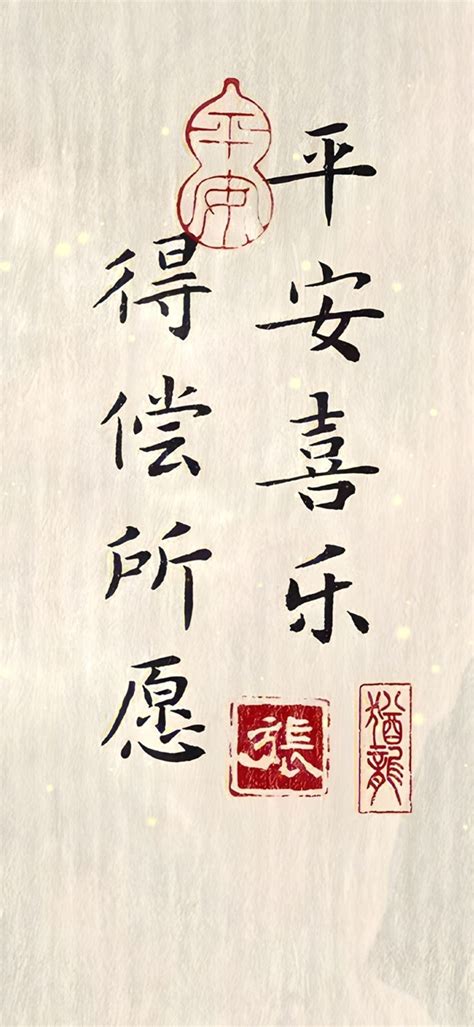 平安喜乐
得偿所愿
平安
張
猶龍